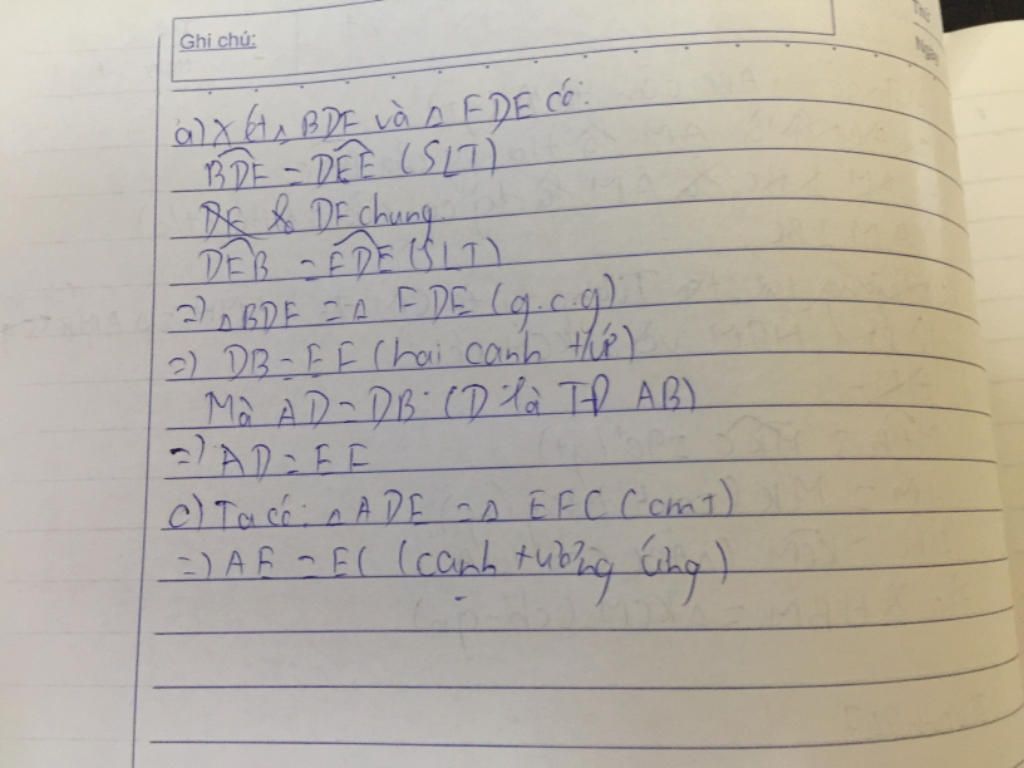 Ghi chú:
Thứ
Ngày
a) Xét △ BDF và △ EDF có:
BDF = DFE (SLT)
DF chung
DFB = EDF (SLT)
=) △BDF = △ FDE (g.c.g)
=) DB = EF (hai cạnh t/ứ)
Mà AD = DB (D là TĐ AB)
=) AD = EF
c) Ta có: △ ADE = △ EFC (cmT)
=) AE = EC (cạnh tương ứng)